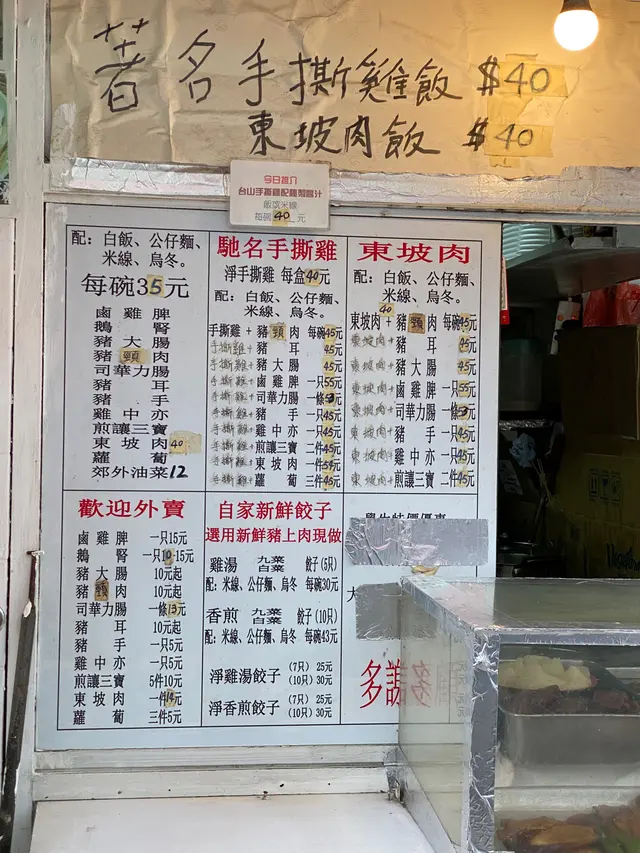 著名手撕雞飯 $40
東坡肉飯 $40
今日推介
台山手撕雞配
飯或米線
每碗40元
配：白飯、公仔麵、
米線、烏冬。
每碗35元
鹵雞脾
鵝腎
豬大腸
豬頸肉
司華力腸
豬耳
豬手
雞中亦
煎讓三寶
東坡肉 40
蘿蔔
郊外油菜12
馳名手撕雞
淨手撕雞 每盒40元
配：白飯、公仔麵、
米線、烏冬。
手撕雞+豬頸肉 每碗45元
手撕雞+豬耳 45元
手撕雞+豬大腸 45元
手撕雞+鹵雞脾 一只55元
手撕雞+司華力腸 一條元
手撕雞+豬手 一只45元
手撕雞+雞中亦 一只45元
手撕雞+煎讓三寶 二件45元
手撕雞+東坡肉 一只元
手撕雞+蘿蔔 三件45元
東坡肉
配：白飯、公仔麵、
米線、烏冬。
40
東坡肉+豬頸肉 每碗45元
東坡肉+豬耳 45元
東坡肉+豬大腸 45元
東坡肉+鹵雞脾 一只55元
東坡肉+司華力腸 一條元
東坡肉+豬手 一只45元
東坡肉+雞中亦 一只45元
東坡肉+煎讓三寶 二件45元
歡迎外賣
鹵雞脾 一只15元
鵝腎 一只10-15元
豬大腸 10元起
豬頸肉 10元起
司華力腸 一條13元
豬耳 10元起
豬手 一只5元
雞中亦 一只5元
煎讓三寶 5件10元
東坡肉 一件元
蘿蔔 三件5元
自家新鮮餃子
選用新鮮豬上肉現做
雞湯 九菜 白菜 餃子(5只)
配：米線、公仔麵、烏冬 每碗30元
香煎 九菜 白菜 餃子(10只)
配：米線、公仔麵、烏冬 每碗43元
淨雞湯餃子 (7只) 25元
(10只) 30元
淨香煎餃子 (7只) 25元
(10只) 30元
多謝